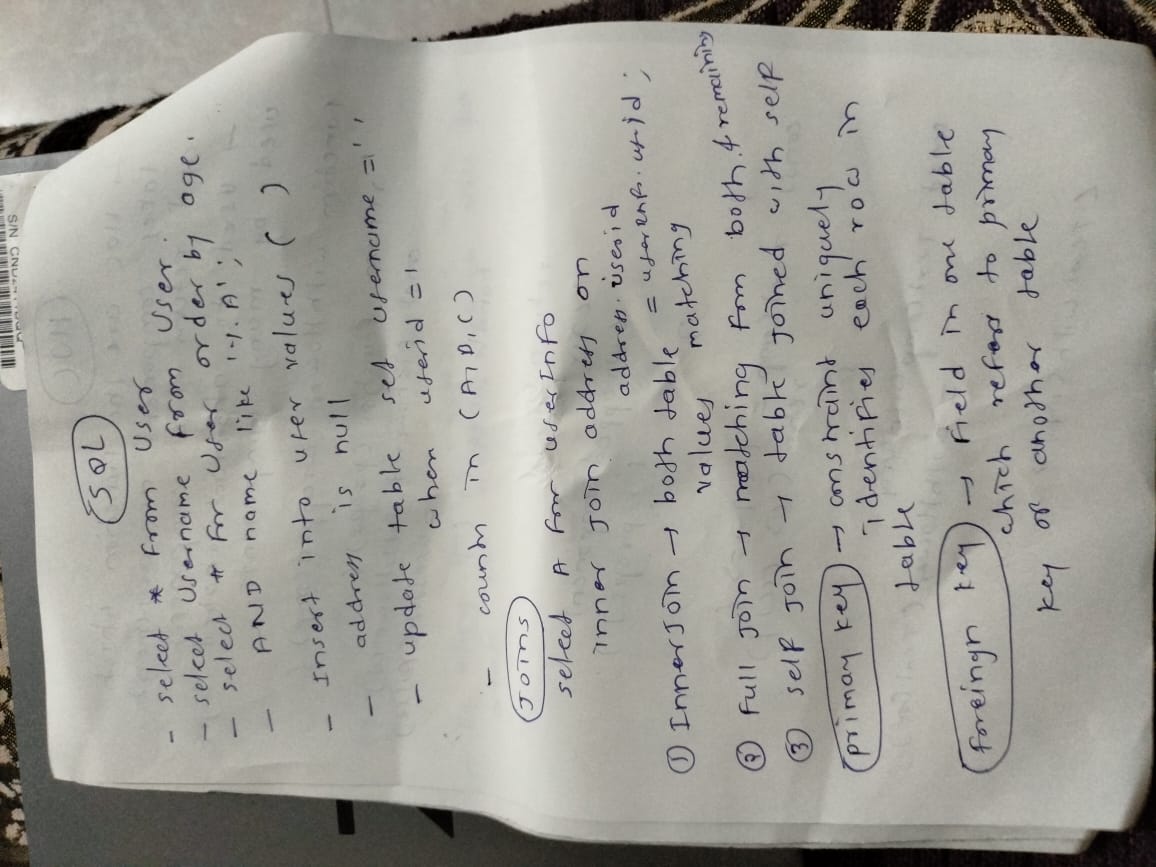 SQL
- select * from User
- select Username from User.
- select * for User order by age.
- AND name like '%A';
- Insert into user values ( )
- address is null
- update table set username = ' '
when userid = 1
- country in (A, B, C)
Joins
select A from userInfo
inner join address on
address.userid
= userInf.usrid;
① Inner join → both table matching
values
② Full join → matching from both & remaining
③ self join → table joined with self
primary key → constraint uniquely
identifies each row in
table
foreingn key → Field in one table
which refers to primary
key of another table
S/N